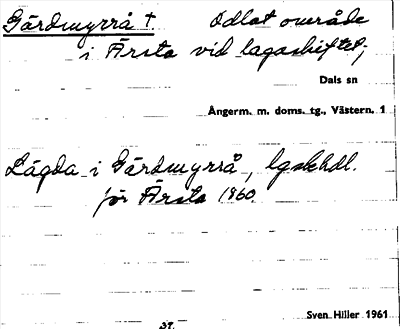 Gärdmyrrå †. Odlat område
i Ärsta vid lagaskiftet;
Dals sn
Ångerm. m. doms. tg., Västern. 1
Lägda i Gärdmyrrå, lgskhdl.
för Ärsta 1860.
Sven Hiller 1961
37.